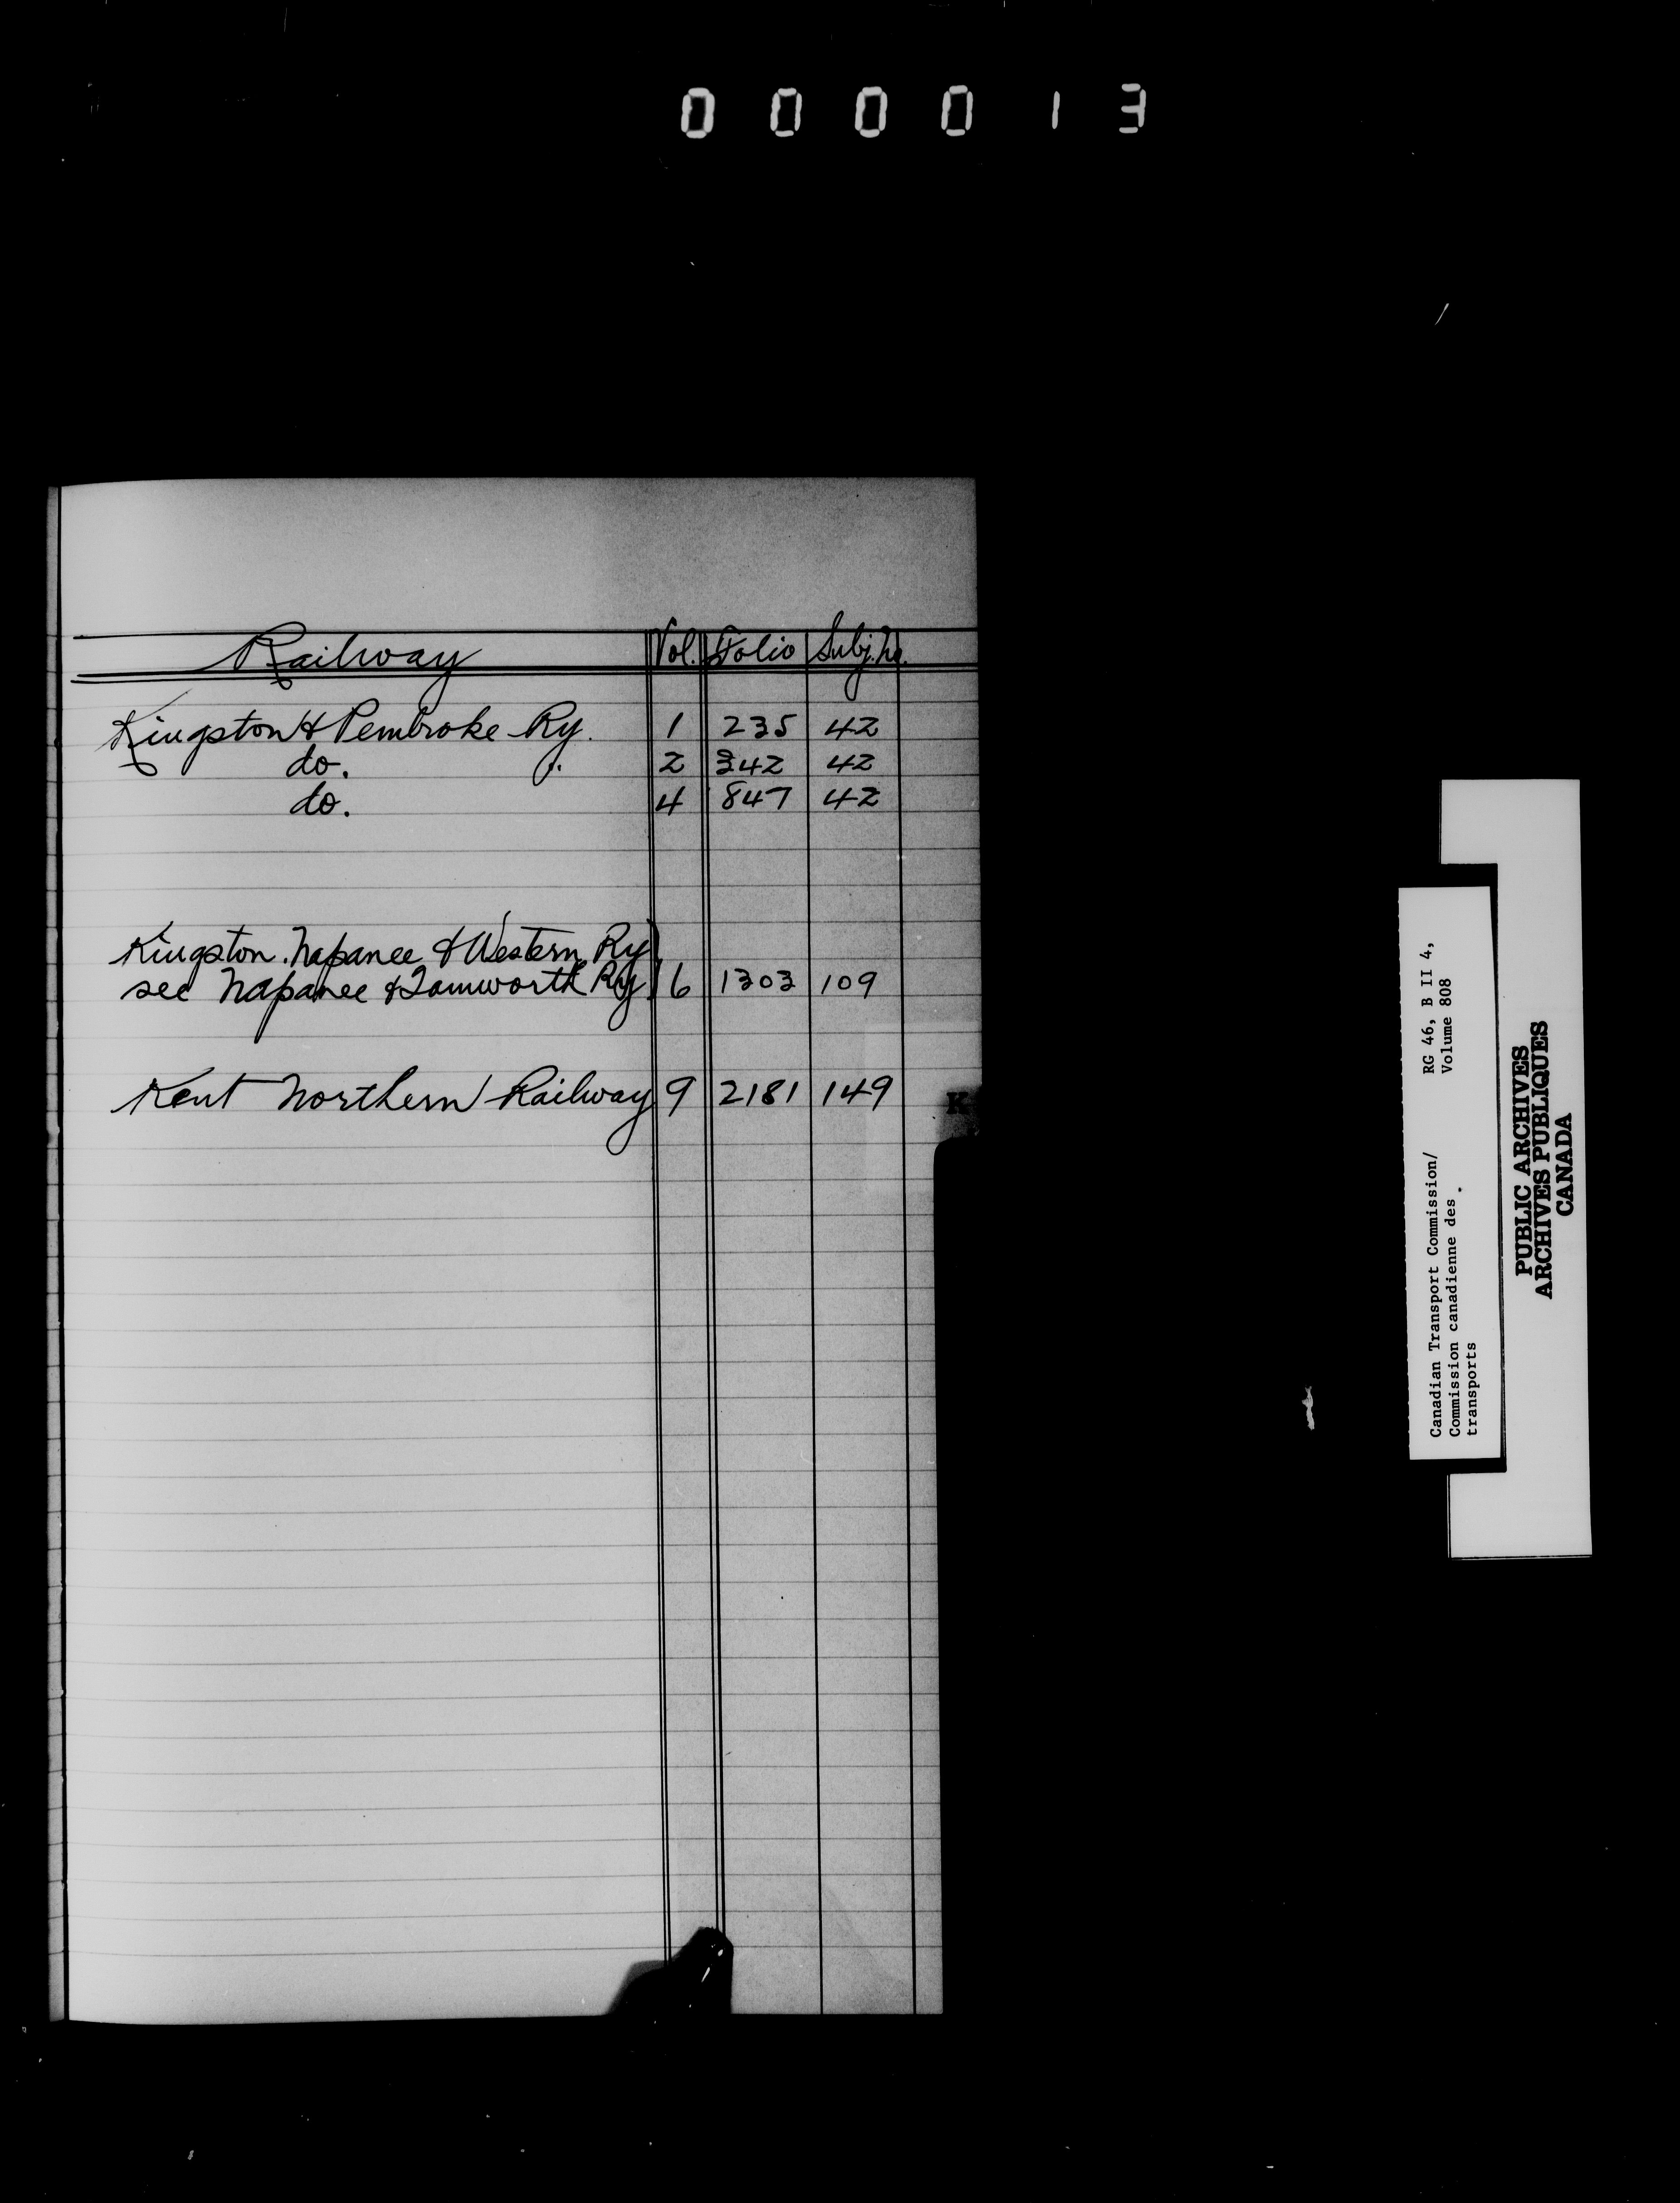 000013
Railway Vol. Folio Subj. No.
Kingston & Pembroke Ry. 1 235 42
do. 2 342 42
do. 4 847 42
Kingston. Napanee & Western Ry
see Napanee & Tamworth Ry 6 1303 109
Kent Northern Railway 9 2181 149
K
RG 46, B II 4,
Volume 808
Canadian Transport Commission/
Commission canadienne des
transports
PUBLIC ARCHIVES
ARCHIVES PUBLIQUES
CANADA